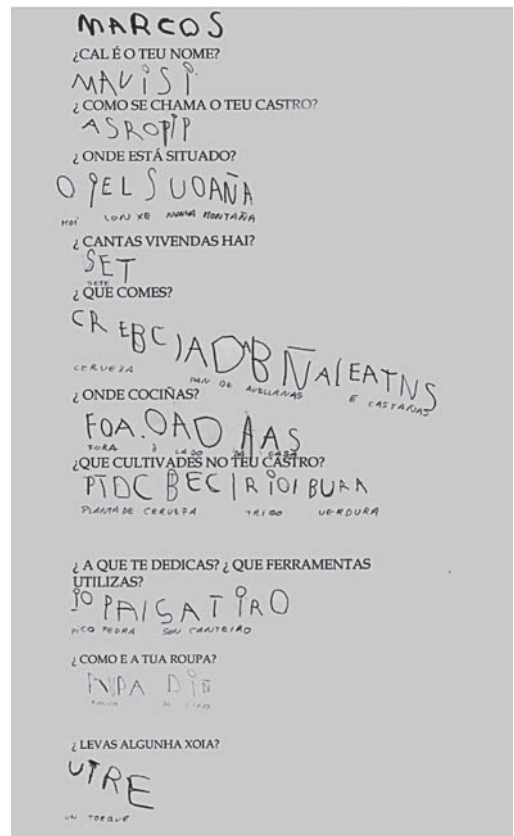 MARCOS
¿CAL É O TEU NOME?
MAVISI
¿ COMO SE CHAMA O TEU CASTRO?
ASROPIP
¿ ONDE ESTÁ SITUADO?
O PEL SUOAÑA
MOI LONXE NUNHA MONTAÑA
¿ CANTAS VIVENDAS HAI?
SET
SETE
¿ QUE COMES?
CR EBCIADABÑAIEATNS
CERVEZA PAN DE AVELLANAS E CASTAÑAS
¿ ONDE COCIÑAS?
FOA.OAD AAS
FORA Ó LADO DA CASA
¿QUE CULTIVADES NO TEU CASTRO?
PTDC BEC IRIOI BURA
PLANTA DE CERVEZA TRIGO VERDURA
¿ A QUE TE DEDICAS? ¿ QUE FERRAMENTAS
UTILIZAS?
IO PAISATIRO
PICO PEDRA SON CANTEIRO
¿ COMO E A TUA ROUPA?
DE LIÑO
¿ LEVAS ALGUNHA XOIA?
UTRE
UN TORQUE